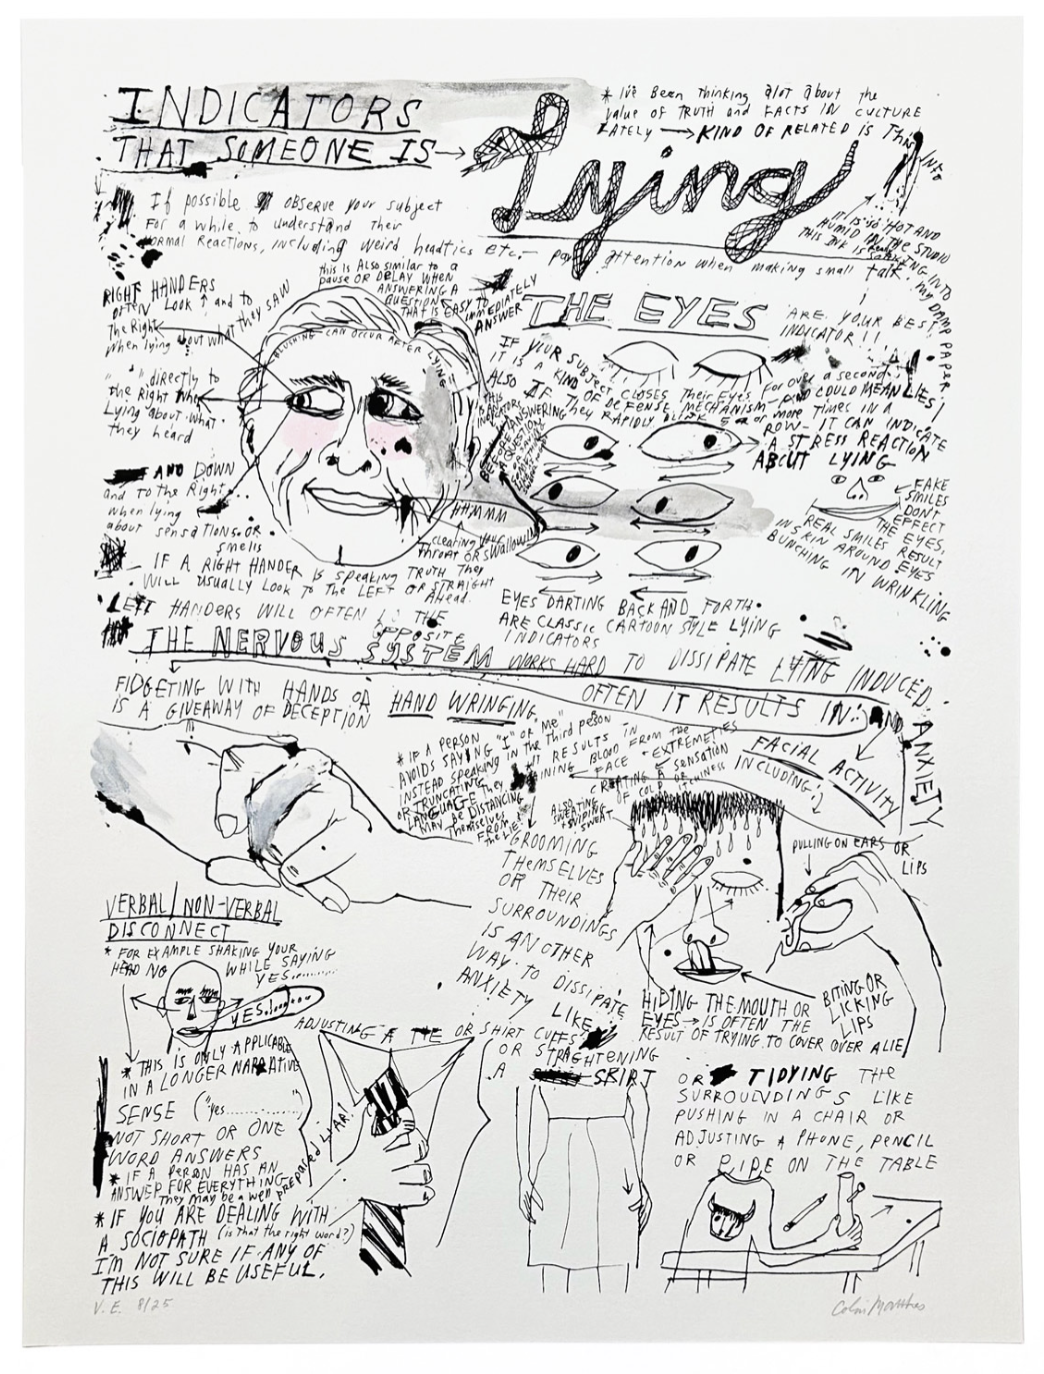 INDICATORS
THAT SOMEONE IS →
Lying
* I've Been Thinking alot about the
value of TRUTH and FACTS IN CULTURE
LATELY → KIND OF RELATED IS THIS
INTO
IT IS SO HOT AND
HUMID IN THE STUDIO
THIS INK IS SOAKING INTO
my DAMP PAPER
If possible observe your subject
For a while to understand their
Normal Reactions, including weird headtics etc. - pay attention when making small talk.
RIGHT HANDERS
often Look ↑ and to
the Right
when lying about what they SAW
this is Also similar to a
pause or DELAY WHEN
ANSWERING A
QUESTION
THAT IS EASY TO IMMEDIATELY
ANSWER
BLUSHING CAN OCCUR AFTER LYING
" " directly to
the Right when
Lying about what
they heard
AND DOWN
and to the Right
when lying
about sensations OR
smells
HHMMM
clearing your
Throat OR Swallowing
IF A RIGHT HANDER IS speaking TRUTH They
WILL USUALLY Look To the LEFT or STRAIGHT
Ahead.
LEFT HANDERS WILL OFTEN THE
OPPOSITE
THE EYES ARE YOUR BEST
INDICATOR!!
IF YOUR SUBJECT CLOSES Their Eyes For over a second
IT IS A KIND OF DEFENSE MECHANISM - AND COULD MEAN LIES!
ALSO IF They RAPIDLY BLINK 5 or more Times IN A
ROW - IT CAN INDICATE
A STRESS REACTION
ABOUT LYING
THIS
BEFORE ANSWERING
A QUESTION
← FAKE
SMILES
DON'T
EFFECT
THE EYES,
REAL SMILES RESULT
IN SKIN AROUND EYES
BUNCHING IN WRINKLING
EYES DARTING BACK AND FORTH
ARE CLASSIC CARTOON STYLE LYING
INDICATORS
THE NERVOUS SYSTEM WORKS HARD TO DISSIPATE LYING INDUCED
ANXIETY
OFTEN IT RESULTS IN: AND
FIDGETING WITH HANDS OR HAND WRINGING
IS A GIVEAWAY OF DECEPTION
* IF A PERSON
AVOIDS SAYING "I" or "ME"
INSTEAD speaking in the Third person
or TRUNCATING
LANGUAGE They
MAY be DISTANCING
Themselves
FROM
the LIES
IT RESULTS IN
DRAINING BLOOD FROM the
FACE + EXTREMETIES
CREATING A SENSATION
OF COLD OR
ALSO TRY
SWEATING
+ WIPING
SWEAT
FACIAL ACTIVITY
INCLUDING:
PULLING ON EARS OR
LIPS
GROOMING
THEMSELVES
OR Their
SURROUNDINGS
IS ANOTHER
WAY TO DISSIPATE
ANXIETY LIKE
HIDING THE MOUTH OR
EYES → IS OFTEN THE
RESULT OF TRYING TO COVER OVER A LIE
BITING OR
LICKING
LIPS
VERBAL/NON-VERBAL
DISCONNECT
* FOR EXAMPLE SHAKING YOUR
HEAD NO WHILE SAYING
YES.........
YES.........
* THIS IS ONLY APPLICABLE
IN A LONGER NARRATIVE
SENSE ("yes..............")
NOT SHORT OR ONE
WORD ANSWERS
* IF A PERSON HAS AN
ANSWER FOR EVERYTHING
They may be a well prepared LIAR!
* IF YOU ARE DEALING WITH
A SOCIOPATH (is that the right word?)
I'M NOT SURE IF ANY OF
THIS WILL BE USEFUL.
ADJUSTING A TIE OR SHIRT CUFFS
OR STRAGHTENING
A SKIRT
OR TIDYING THE
SURROUNDINGS LIKE
PUSHING IN A CHAIR OR
ADJUSTING A PHONE, PENCIL
OR PIPE ON THE TABLE
V.E. 8/25
Colin Matthes